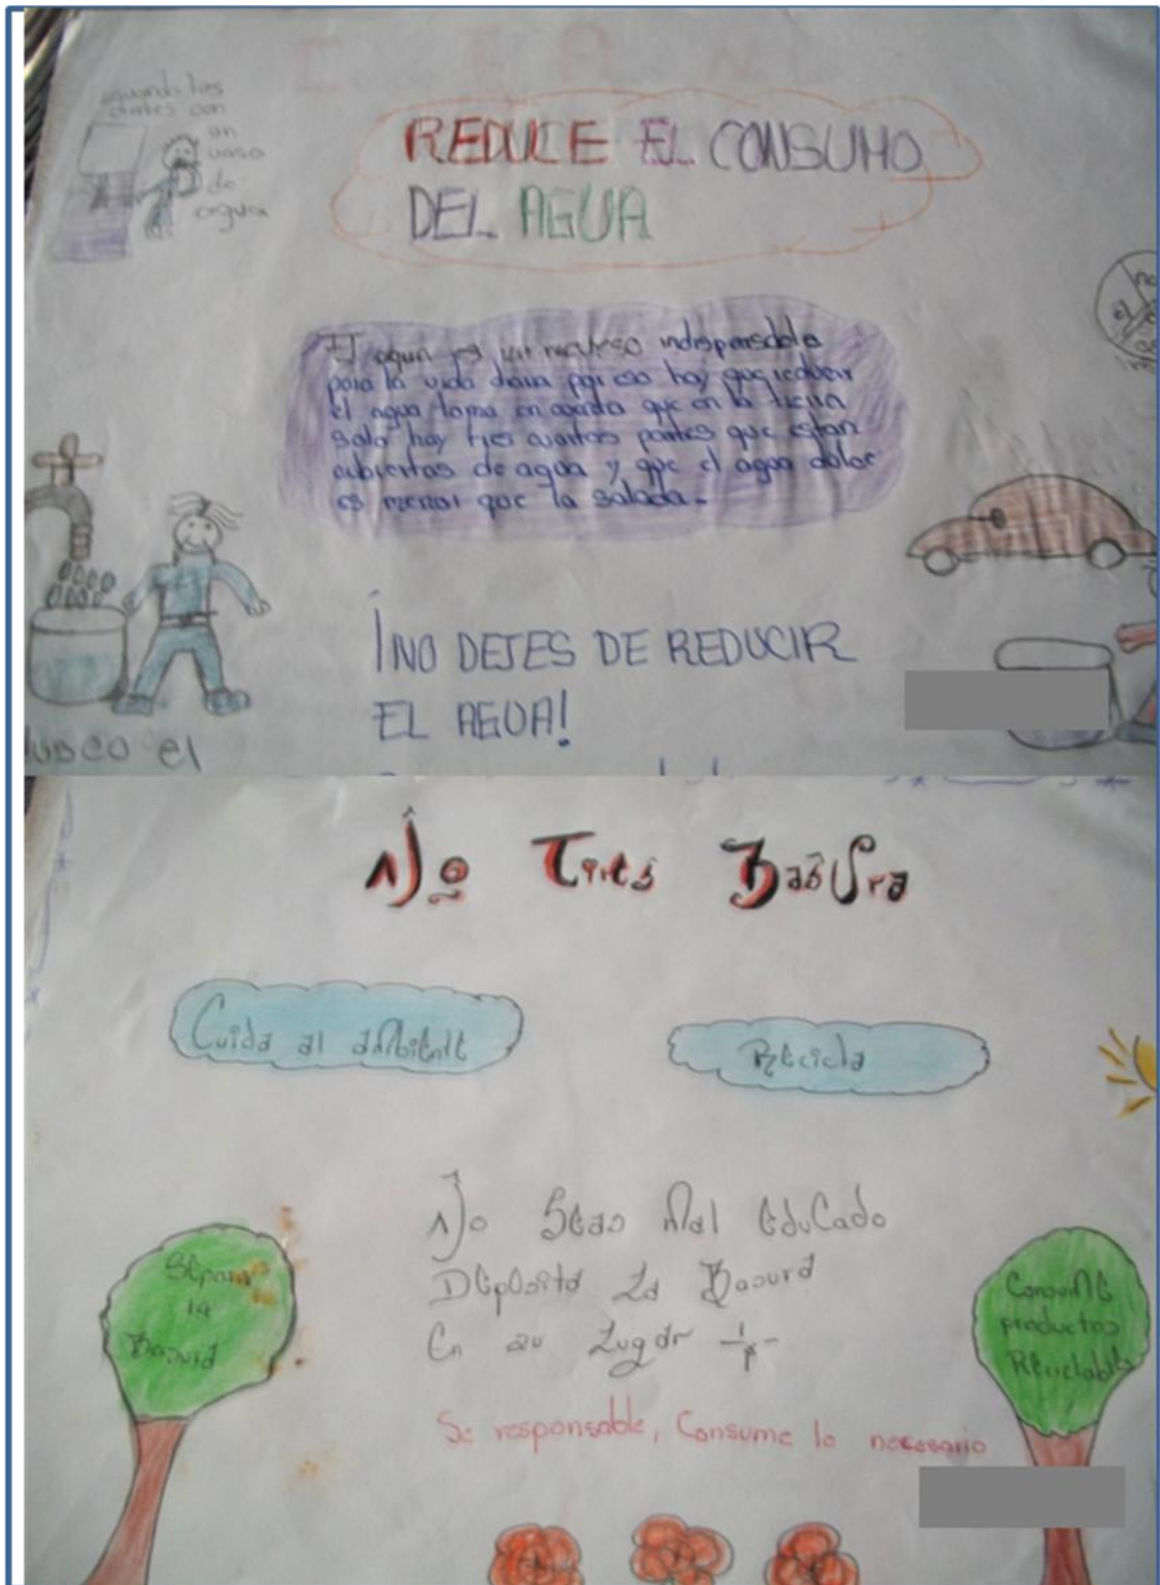 lavando los
dientes con
un
vaso
de
agua
REDUCE EL CONSUMO
DEL AGUA
El agua es un recurso indispensable
para la vida diaria por eso hay que reducir
el agua toma en cuenta que en la tierra
solo hay tres cuartas partes que estan
cubiertas de agua y que el agua dulce
es menor que la salada.
¡NO DEJES DE REDUCIR
EL AGUA!
el
No Tires Basura
Cuida al ambiente
Recicla
No Seas Mal Educado
Deposita La Basura
En su Lugar
Separa
la
Basura
Consume
productos
Reciclables
Se responsable, Consume lo necesario